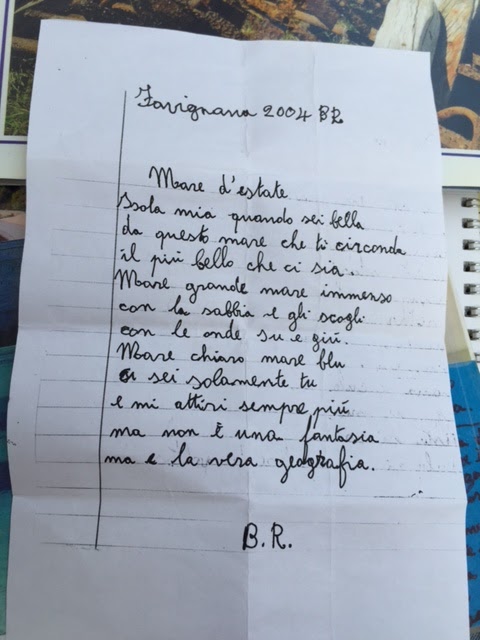 Favignana 2004 BR
Mare d'estate
Isola mia quando sei bella
da questo mare che ti circonda
il più bello che ci sia.
Mare grande mare immenso
con la sabbia e gli scogli
con le onde su e giú.
Mare chiaro mare blu
ci sei solamente tu
e mi attiri sempre piú
ma non È una fantasia
ma e la vera geografia.
B.R.